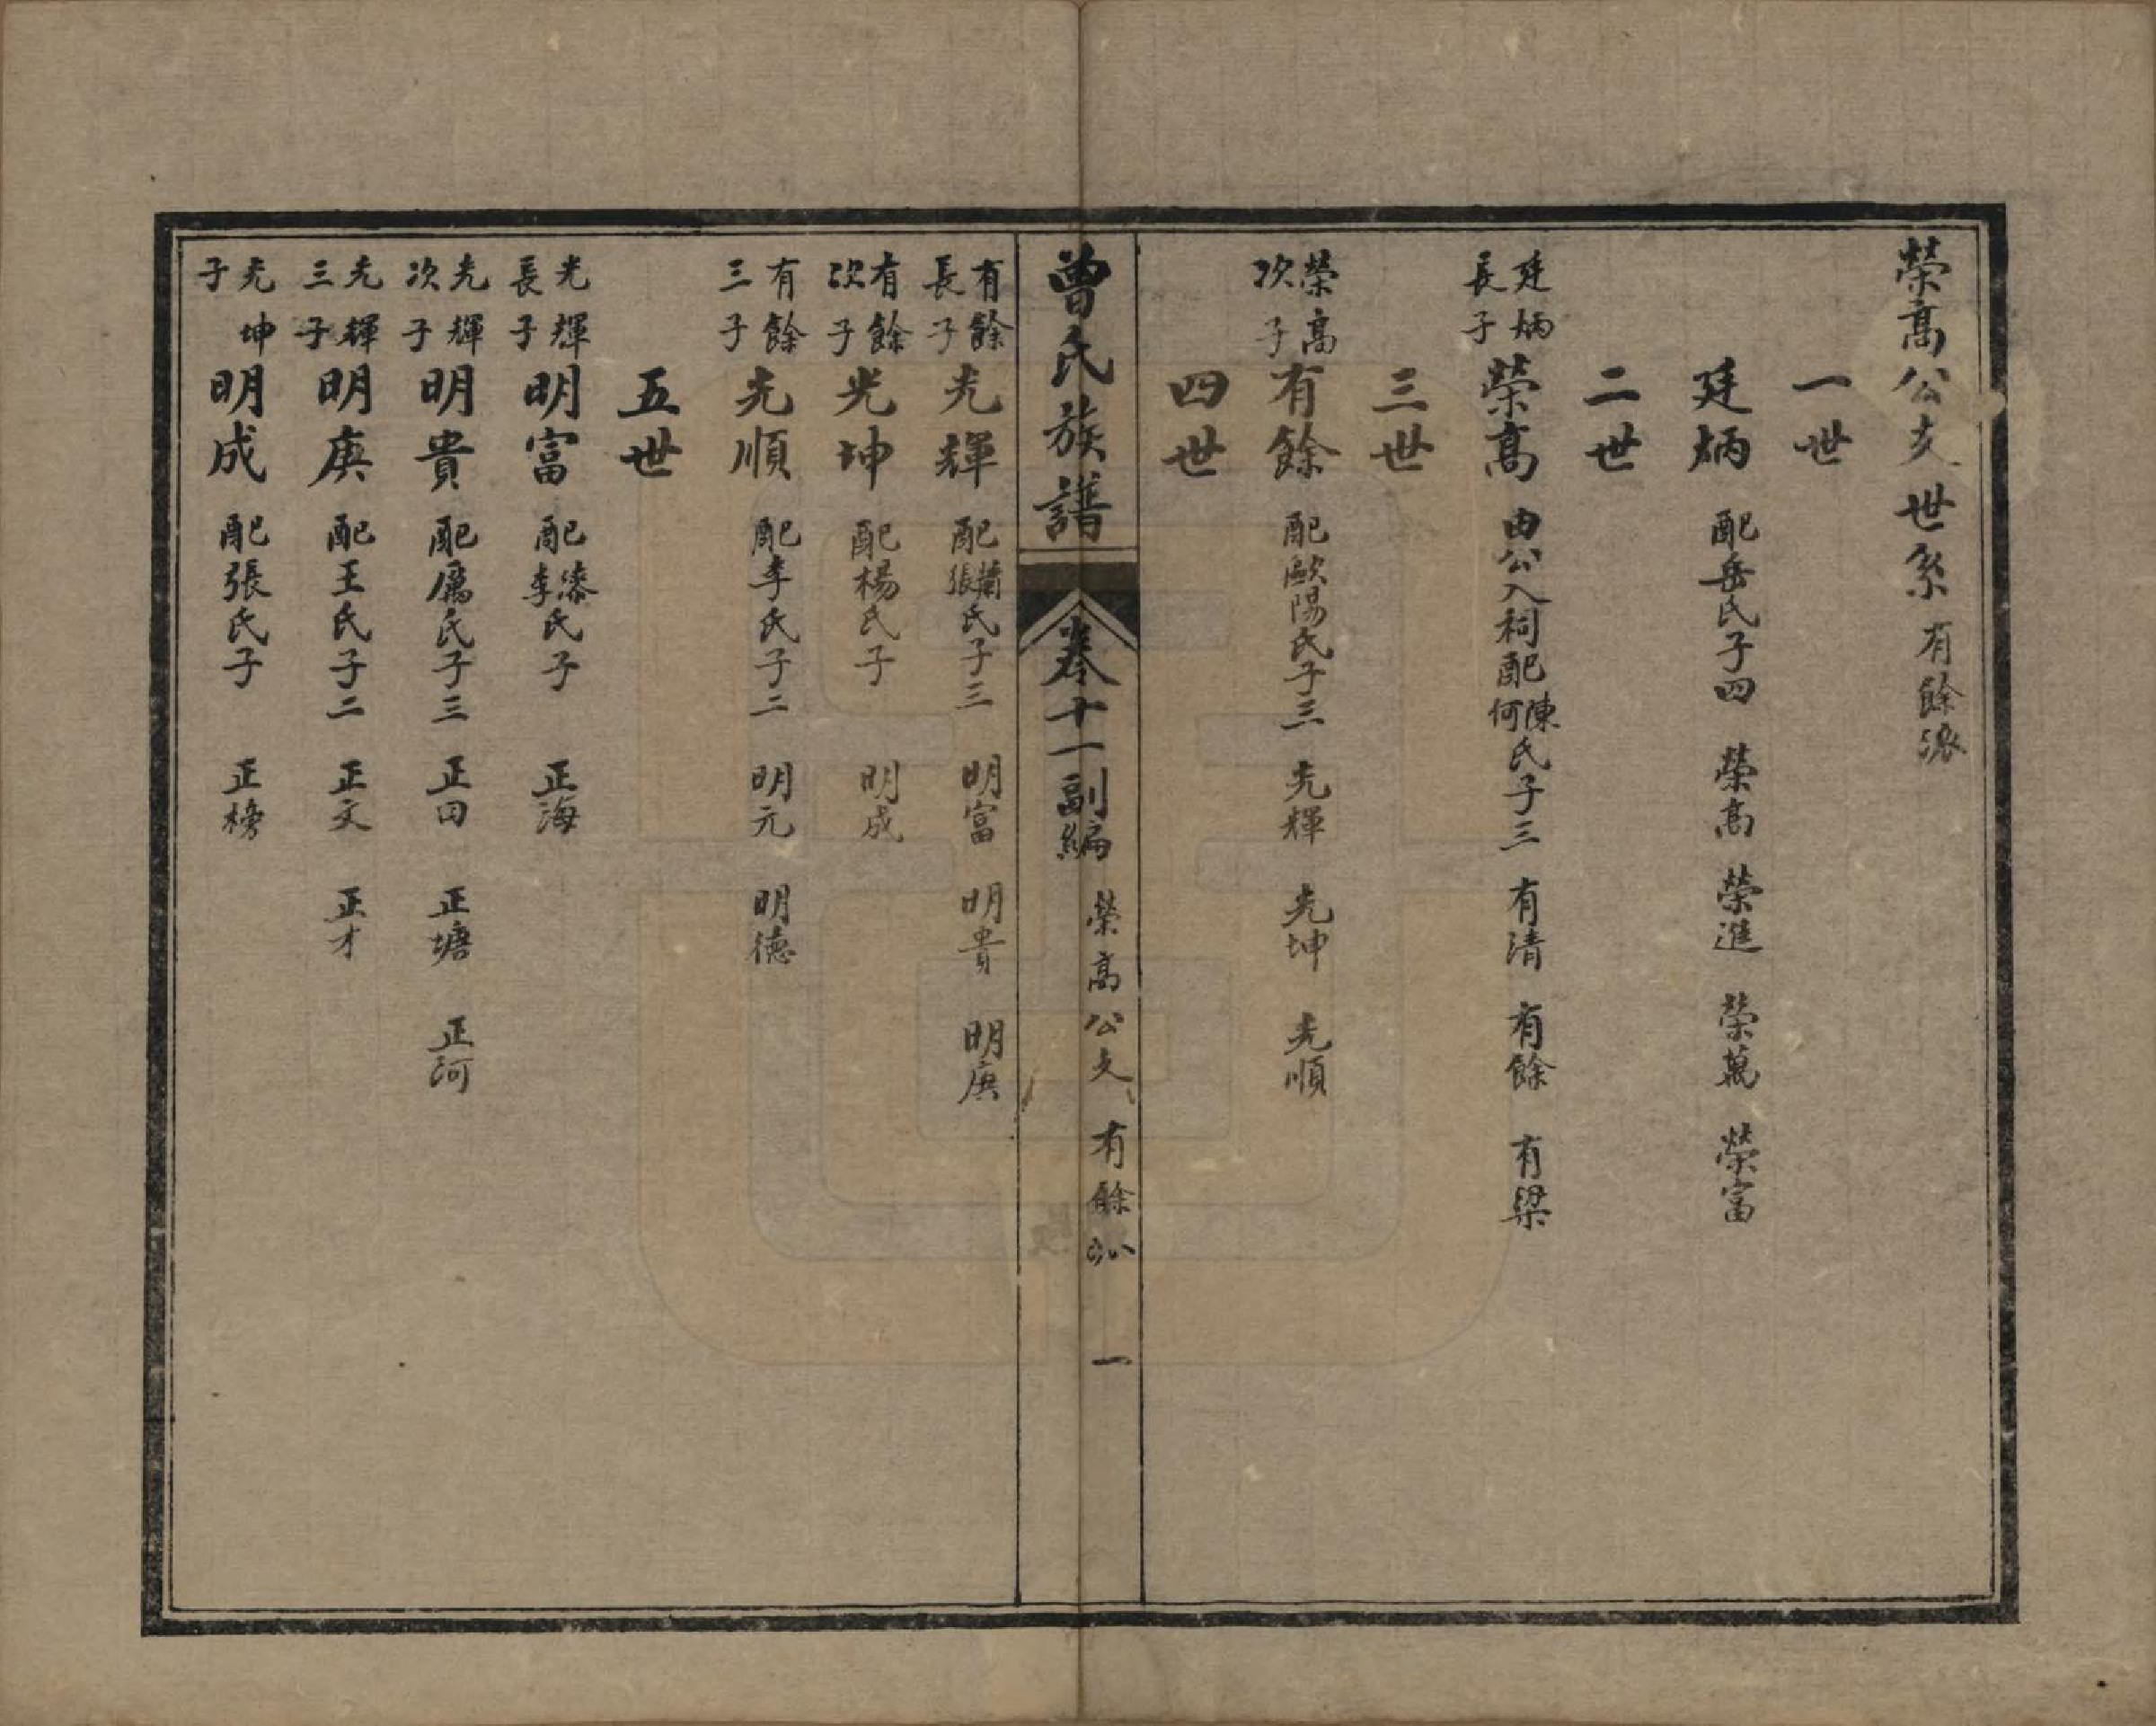 榮高公支世系 有餘派
一世
廷炳 配岳氏子四 榮高 榮進 榮萬 榮富
二世
廷炳長子 榮高 由公入祠配陳何氏子三 有清 有餘 有梁
三世
榮高次子 有餘 配歐陽氏子三 光輝 光坤 光順
四世
曾氏族譜 卷十一副編 榮高公支 有餘派 一
有餘長子 光輝 配蕭張氏子三 明富 明貴 明庚
有餘次子 光坤 配楊氏子 明成
有餘三子 光順 配李氏子二 明元 明德
五世
光輝長子 明富 配漆李氏子 正海
光輝次子 明貴 配厲氏子三 正田 正塘 正河
光輝三子 明庚 配王氏子二 正文 正才
光坤子 明成 配張氏子 正榜